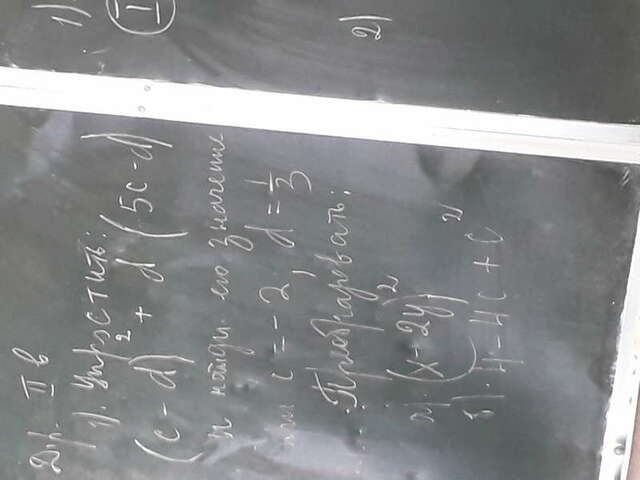 Д.р. II в
1). Упростить:
(c - d)² + d (5c - d)
и найди его значение
при c = -2; d = 1/3
Преобразовать:
а). (x - 2y)²
б). 4 - 4c + c²
1).
I
2)